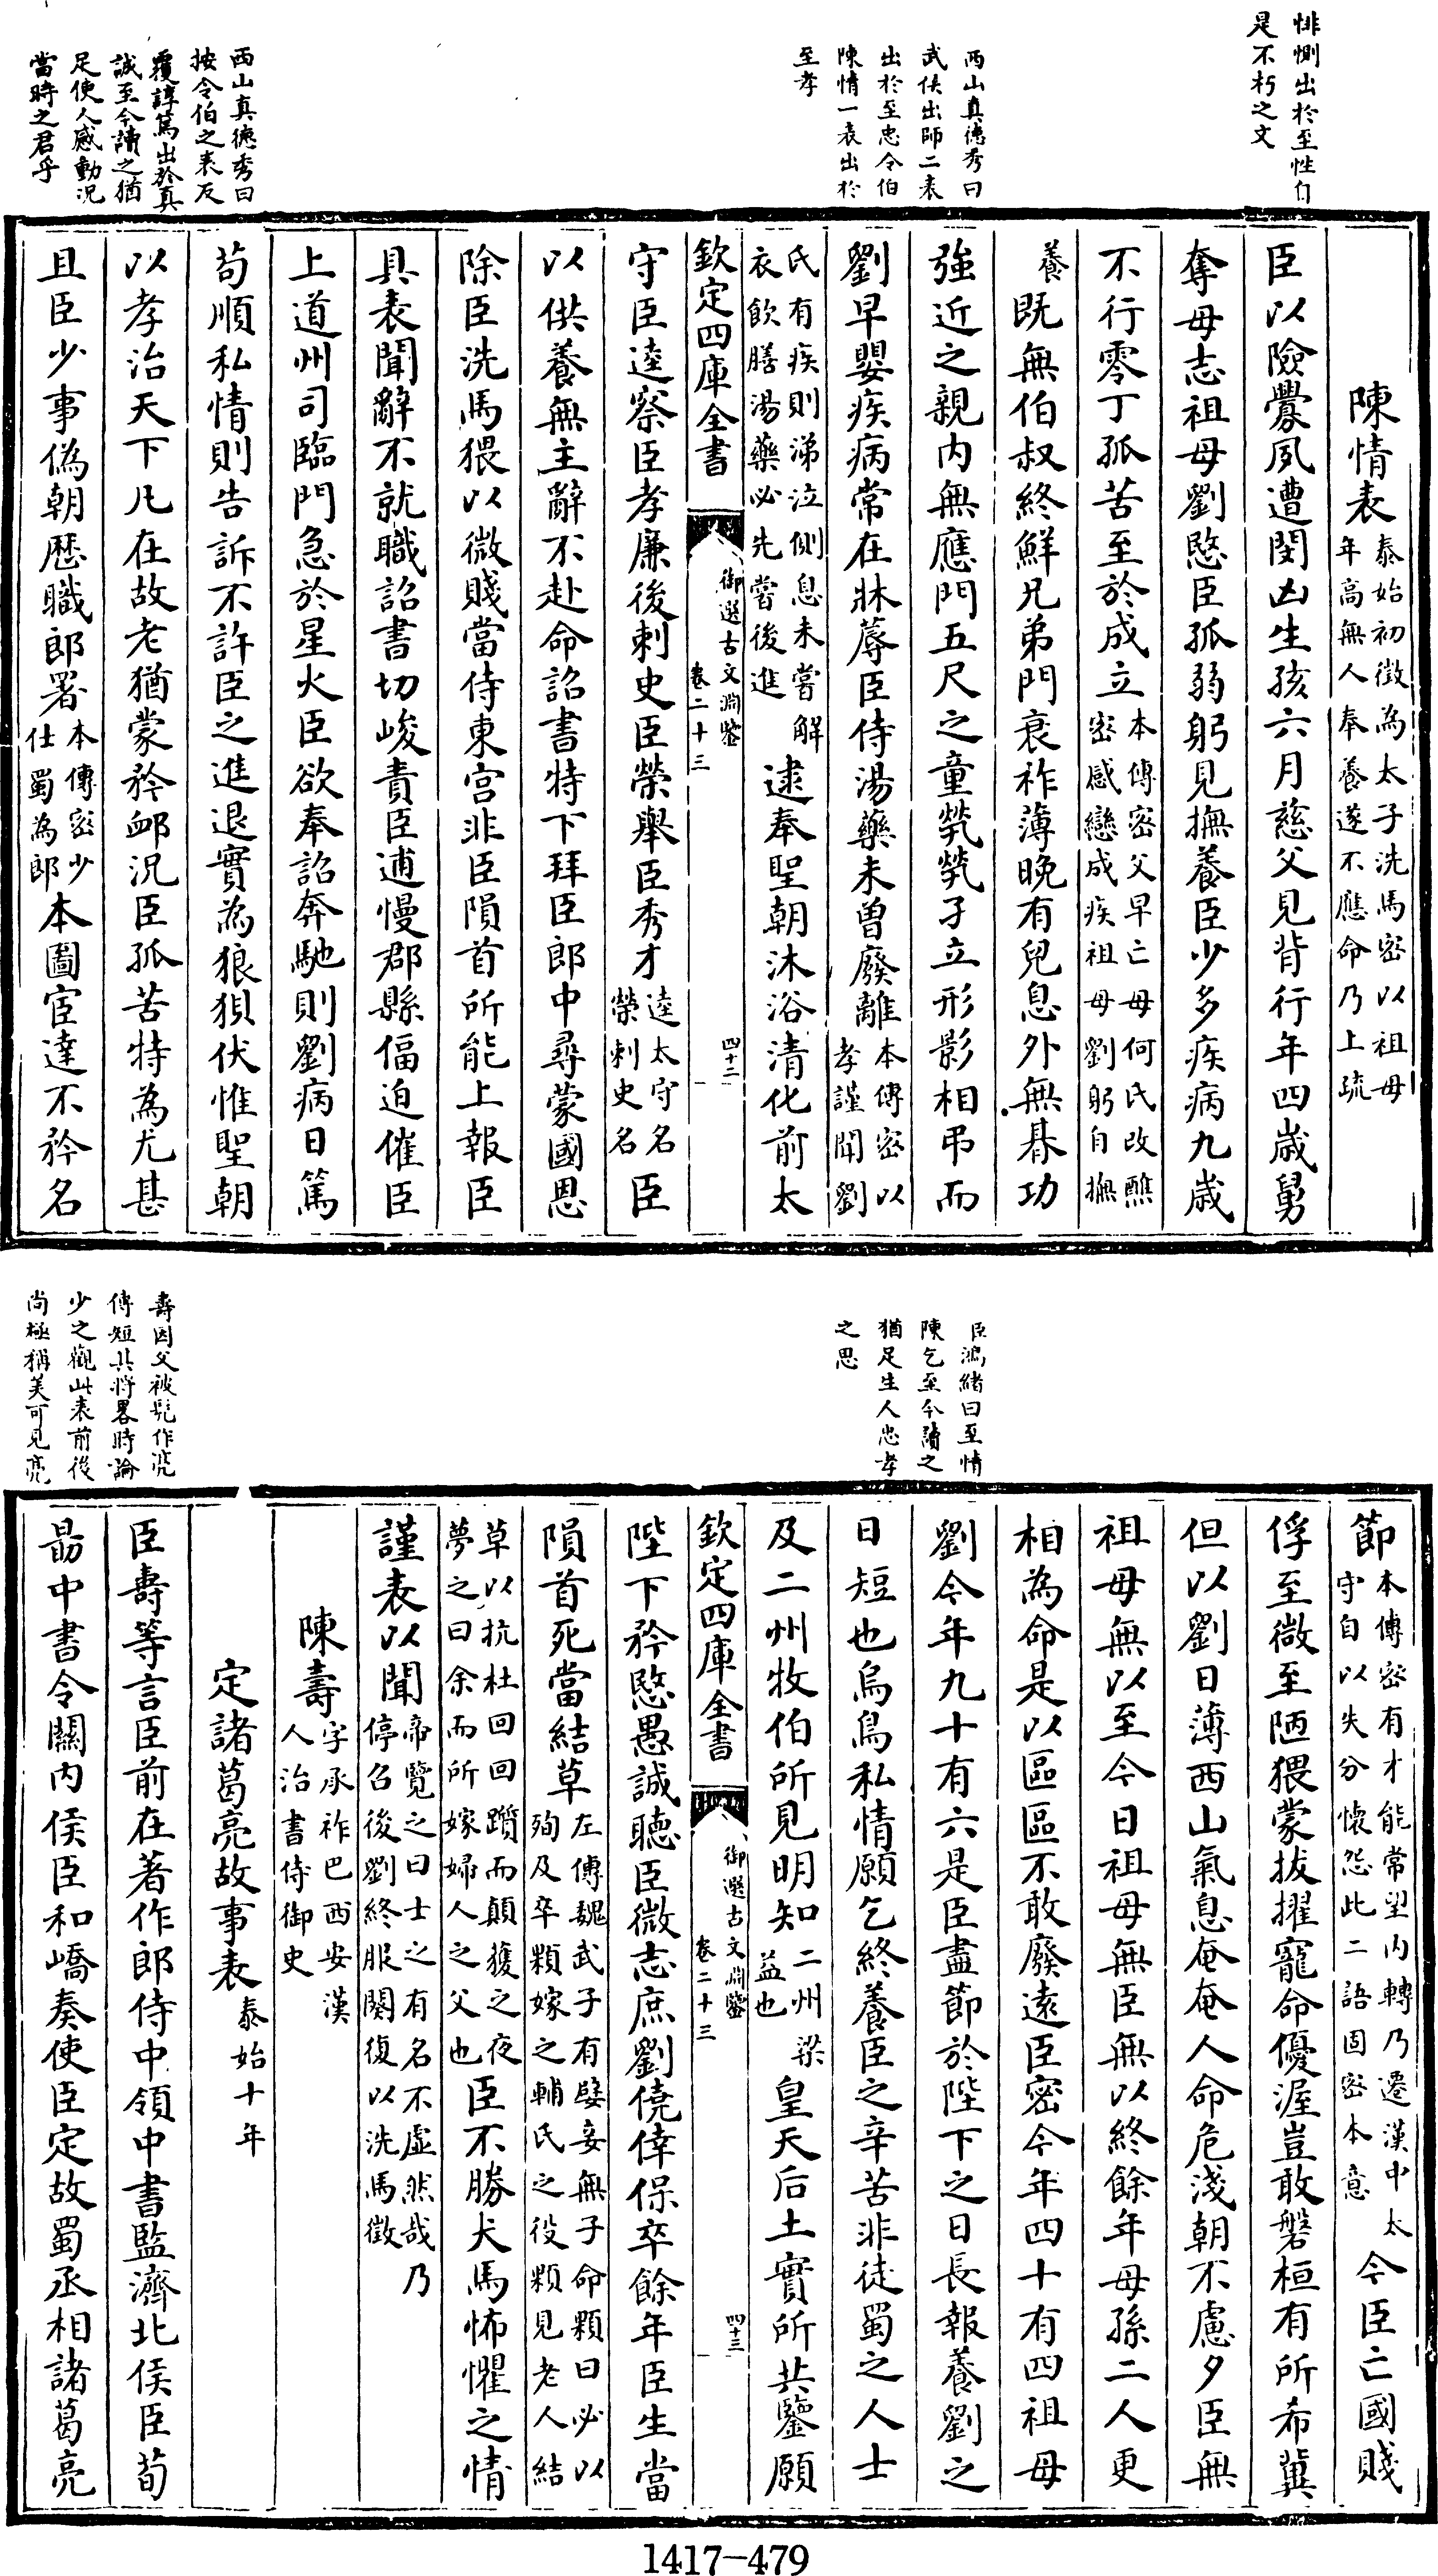 悱惻出於至性自
是不朽之文
西山真德秀曰
武侯出師二表
出於至忠令伯
陳情一表出於
至孝
西山真德秀曰
按令伯之表反
覆諄篤出於真
誠至今讀之猶
足使人感動況
當時之君乎
陳情表泰始初徵為太子洗馬密以祖母年高無人奉養遂不應命乃上疏
臣以險釁夙遭閔凶生孩六月慈父見背行年四歲舅
奪母志祖母劉愍臣孤弱躬見撫養臣少多疾病九歲
不行零丁孤苦至於成立本傳密父早亡母何氏改醮密感戀成疾祖母劉躬自撫
養既無伯叔終鮮兄弟門衰祚薄晚有兒息外無朞功
強近之親内無應門五尺之童煢煢孑立形影相弔而
劉早嬰疾病常在牀蓐臣侍湯藥未曾廢離本傳密以孝謹聞劉
氏有疾則涕泣側息未嘗解衣飲膳湯藥必先嘗後進逮奉聖朝沐浴清化前太
欽定四庫全書
御選古文淵鑒
卷二十三
四十二
守臣逵察臣孝廉後刺史臣榮舉臣秀才逵太守名榮刺史名臣
以供養無主辭不赴命詔書特下拜臣郎中尋蒙國恩
除臣洗馬猥以微賤當侍東宮非臣隕首所能上報臣
具表聞辭不就職詔書切峻責臣逋慢郡縣偪迫催臣
上道州司臨門急於星火臣欲奉詔奔馳則劉病日篤
苟順私情則告訴不許臣之進退實為狼狽伏惟聖朝
以孝治天下凡在故老猶蒙矜卹況臣孤苦特為尤甚
且臣少事偽朝歷職郎署本傳密少仕蜀為郎本圖宦達不矜名
臣鴻緒曰至情
陳乞至今讀之
猶足生人忠孝
之思
壽因父被髡作亮
傳短其將畧時論
少之觀此表前後
尚極稱美可見亮
節本傳密有才能常望内轉乃遷漢中太守自以失分懷怨此二語固密本意今臣亡國賤
俘至微至陋猥蒙拔擢寵命優渥豈敢磐桓有所希冀
但以劉日薄西山氣息奄奄人命危淺朝不慮夕臣無
祖母無以至今日祖母無臣無以終餘年母孫二人更
相為命是以區區不敢廢遠臣密今年四十有四祖母
劉今年九十有六是臣盡節於陛下之日長報養劉之
日短也烏鳥私情願乞終養臣之辛苦非徒蜀之人士
及二州牧伯所見明知二州梁益也皇天后土實所共鑒願
欽定四庫全書
御選古文淵鑒
卷二十三
四十三
陛下矜愍愚誠聽臣微志庶劉僥倖保卒餘年臣生當
隕首死當結草左傳魏武子有嬖妾無子命顆曰必以殉及卒顆嫁之輔氏之役顆見老人結
草以抗杜回回躓而顛獲之夜夢之曰余而所嫁婦人之父也臣不勝犬馬怖懼之情
謹表以聞帝覽之曰士之有名不虛然哉乃停召後劉終服闋復以洗馬徵
陳壽字承祚巴西安漢人治書侍御史
定諸葛亮故事表泰始十年
臣壽等言臣前在著作郎侍中領中書監濟北侯臣荀
勗中書令關内侯臣和嶠奏使臣定故蜀丞相諸葛亮
1417-479